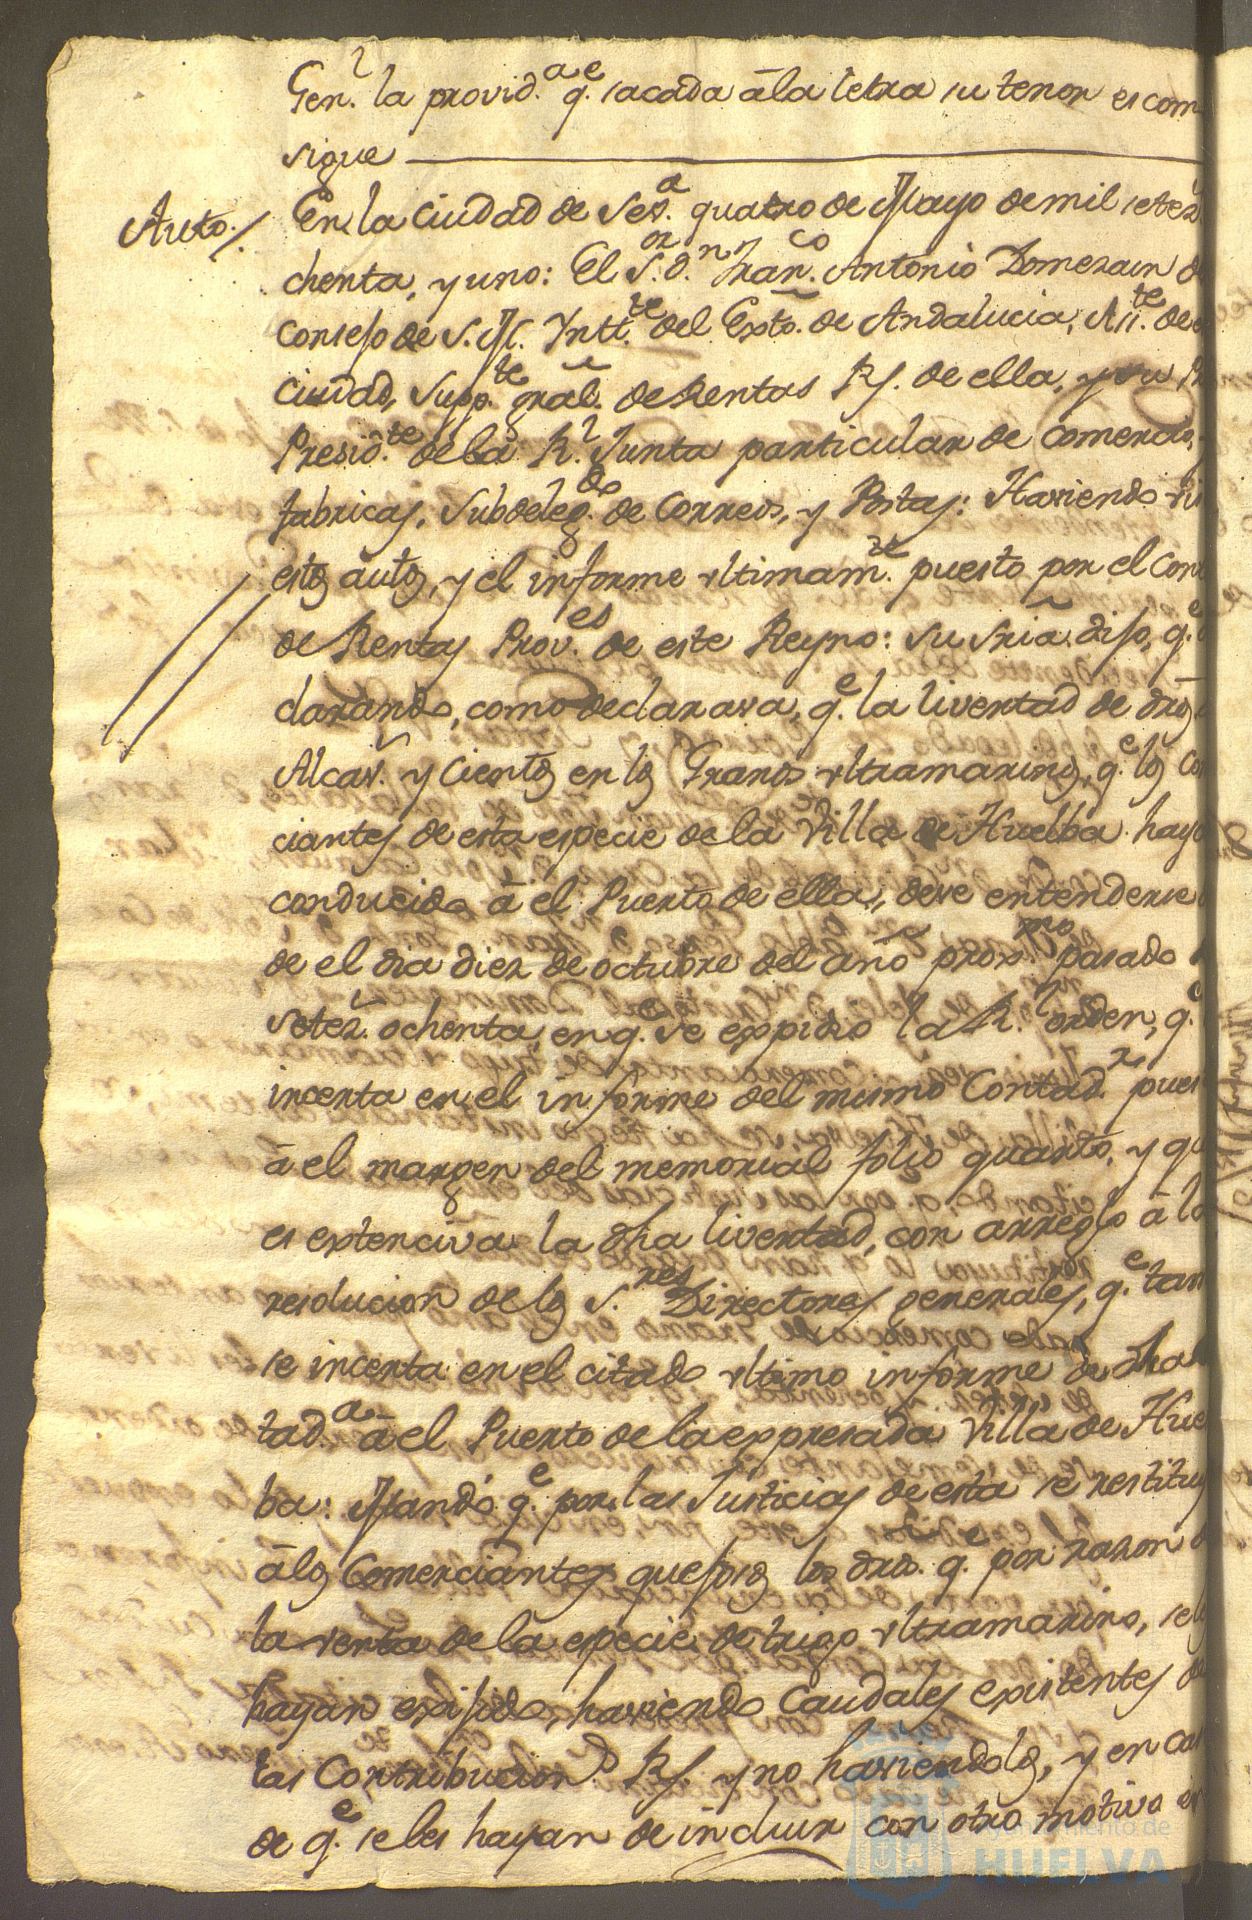 Gen.l la provid.a q.e sacada á la letra su tenor es com
sigue
Auto./ En la Ciudad de Sev.a quatro de Mayo de mil setez.
chenta, y uno: El S.or d.n Fran.co Antonio Domezain d
Consejo de S. M. Yntt.te del Exto. de Andalucia, Asis.te de
Ciudad, Supp.te gral. de Rentas R.s de ella, y su
Presid.te de la R.l Junta particular de comercio,
fabricas, Subdeleg.do de Correos, y Postas: Haviendo vis
estos autos, y el informe ultimam.te puesto por el Con
de Rentas Prov.es de este Reyno: su sria. dijo, q.e
clarando, como declarava, q.e la livertad de dros
Alcav. y Cientos en los Granos ultramarinos, q.e los co
ciantes de esta especie de la Villa de Huelba haya
conducido á el Puerto de ella, deve entenderse
de el dia diez de octubre del año prox.mo pasado
setez. ochenta, en q.e se expidio la R.l orden, q.e
incerta en el informe del mismo Contad.r pues
á el margen del memorial folio quarto, y qu
es extenciva la dha livertad, con arreglo á la
resolucion de los S.res Directores generales, q.e tam
se incerta en el citado ultimo informe de dha
tad.a á el Puerto de la expresada Villa de Hue
ba: Mandó q.e por las Justicias de esta se restituy
á los Comerciantes quejosos los dros. q.e por razon
la venta de la especie de trigo ultramarino, se les
hayan exijido, haviendo Caudales existentes de
las Contribucion.s R.s y no haviendolos, y en cas
de q.e se les hayan de incluir con otro motivo en
Ayuntamiento de
HUELVA